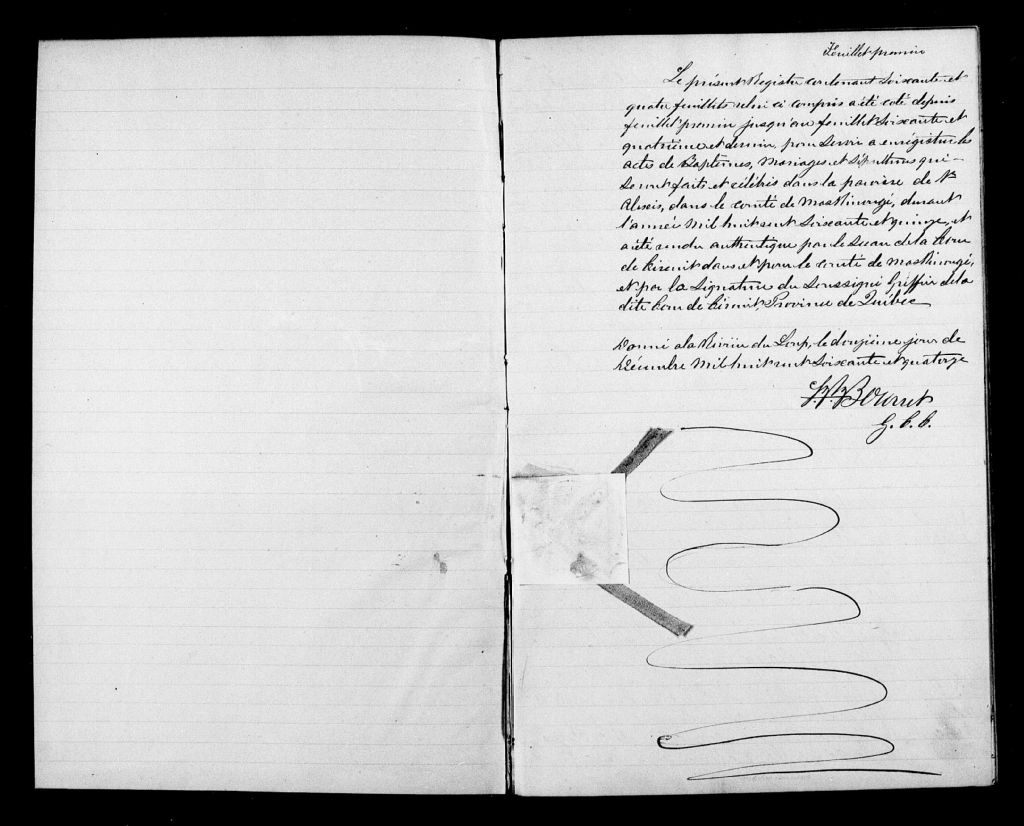 Feuillet premier
Le présent Registre contenant soixante et
quatre feuillets celui ci compris a été coté depuis
feuillet premier jusqu'au feuillet soixante et
quatrième et dernier, pour servir a enrégistrer les
actes de Baptêmes, Mariages et Sépultures qui
seront faits et célébrés dans la paroisse de St
Alexis, dans le comté de Maskinongé, durant
l'année Mil huit cent soixante et quinze, et
a été rendu authentique par le Sceau de la Cour
de Circuit dans et pour le comté de Maskinongé,
et par la Signature du Soussigné Greffier de la
dite Cour de Circuit, Province de Québec
Donné a la Rivière du Loup, le douzième jour de
Décembre Mil huit cent soixante et quatorze
Bourret
G. C. C.